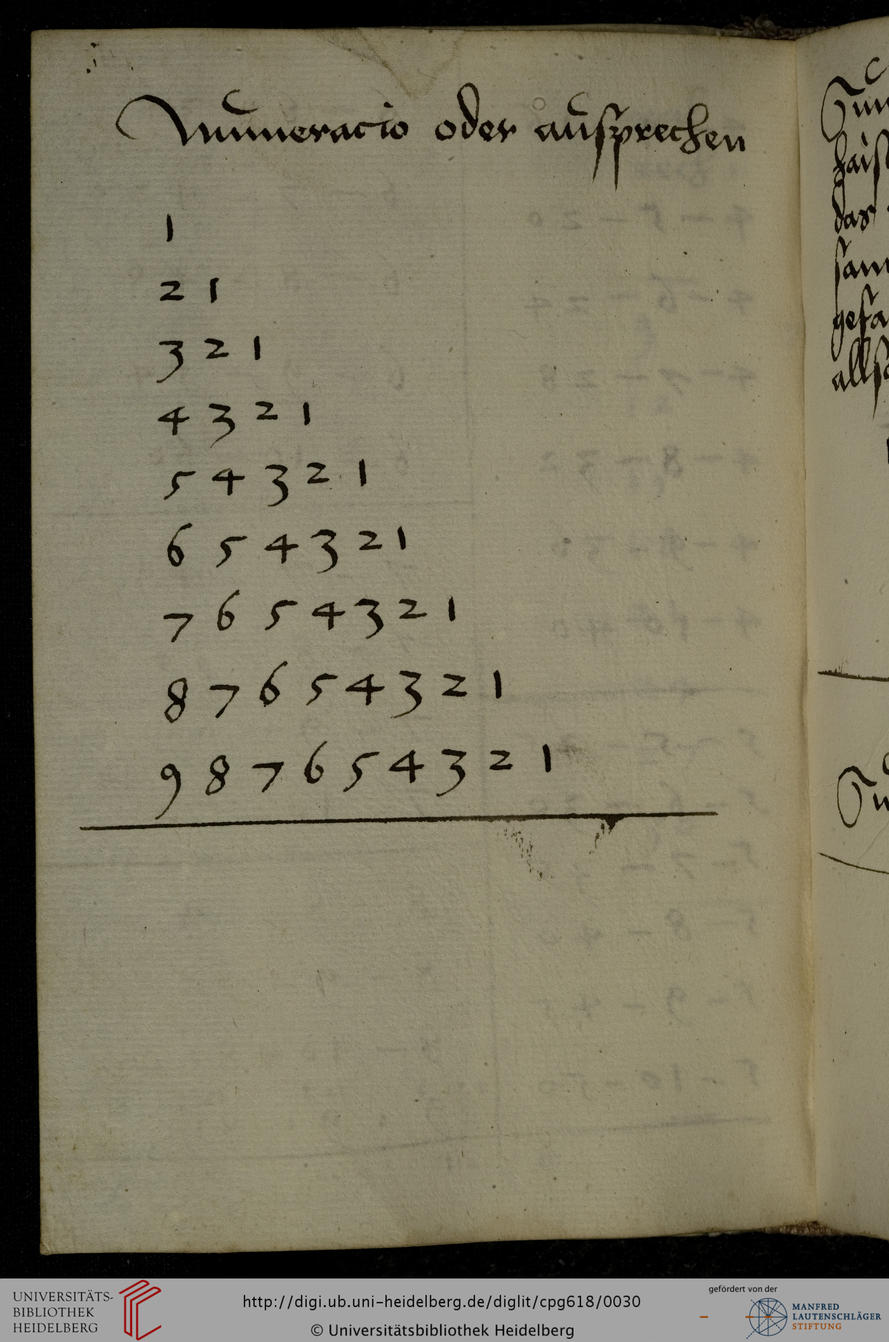 Numeracio oder außsprechen
1
2 1
3 2 1
4 3 2 1
5 4 3 2 1
6 5 4 3 2 1
7 6 5 4 3 2 1
8 7 6 5 4 3 2 1
9 8 7 6 5 4 3 2 1
das
UNIVERSITÄTS-
BIBLIOTHEK
HEIDELBERG
http://digi.ub.uni-heidelberg.de/diglit/cpg618/0030
© Universitätsbibliothek Heidelberg
gefördert von der
MANFRED
LAUTENSCHLÄGER
STIFTUNG